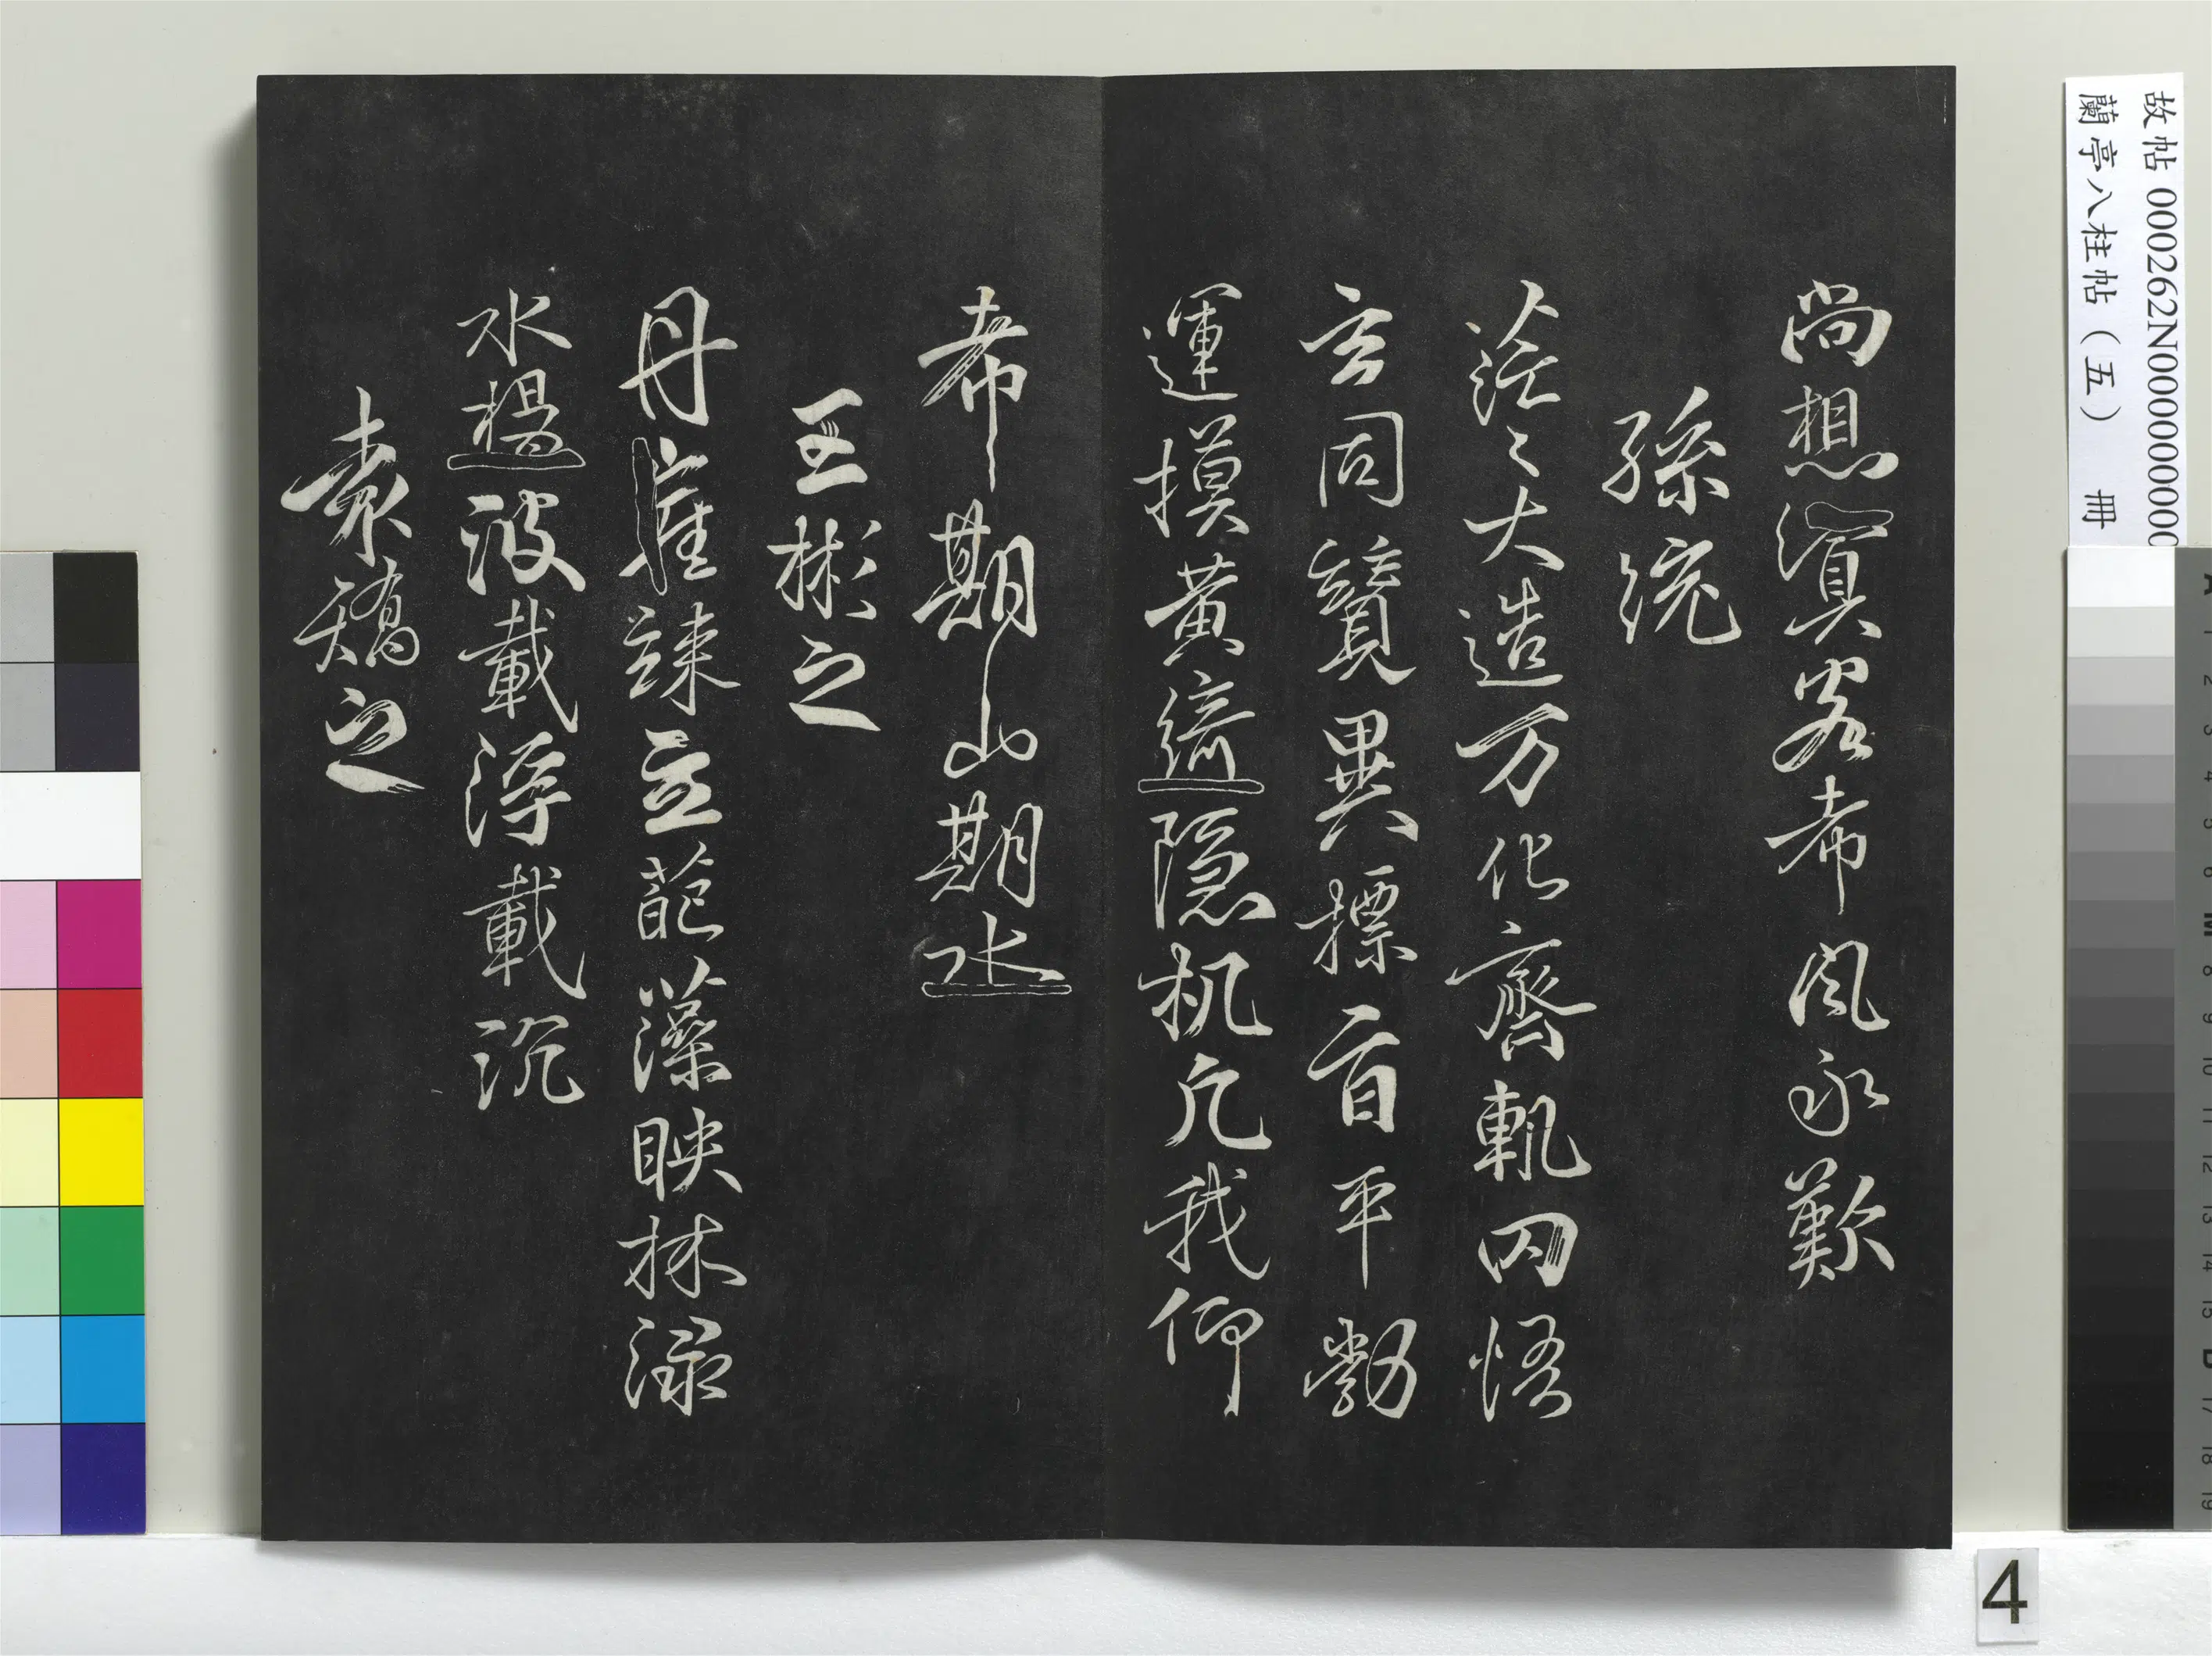 尚想客希風永歎
孫統
茫々大造万化齊軌罔悟
玄同競異摽旨平勃
運摸黃綺隱机凡我仰
希期山期水
王彬之
丹崖竦立葩藻映林淥
水揚波載浮載沉
袁矯之
故帖 000262N000000000
蘭亭八柱帖（五） 冊
4